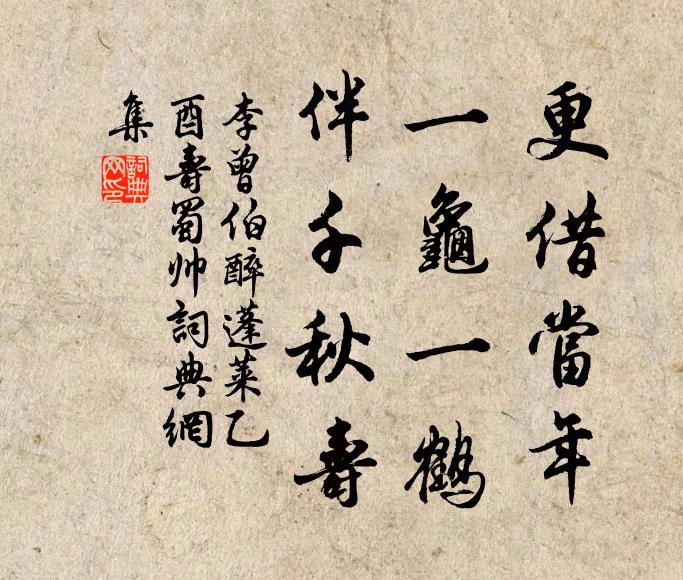 更借當年
一龜一鶴
伴千秋壽
李曾伯醉蓬萊乙
酉壽蜀帅詞典網
集
詞典
网印